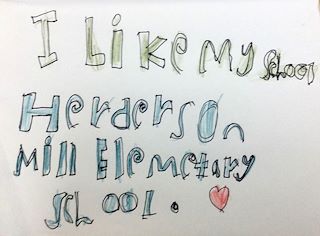 I Like My School
Henderson
Mill Elemetary
School.